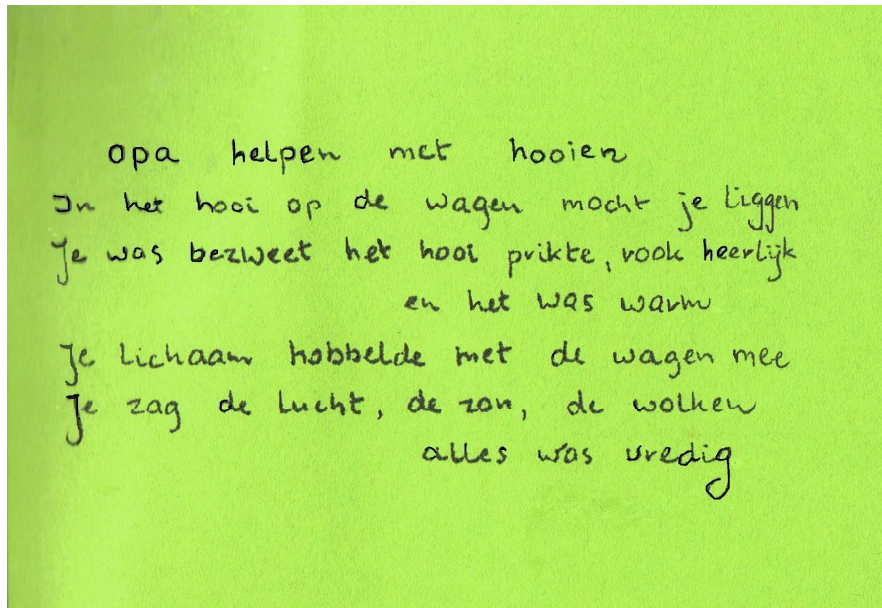 opa helpen met hooien
In het hooi op de wagen mocht je liggen
Je was bezweet het hooi prikte, rook heerlijk
en het was warm
Je lichaam hobbelde met de wagen mee
Je zag de lucht, de zon, de wolken
alles was vredig